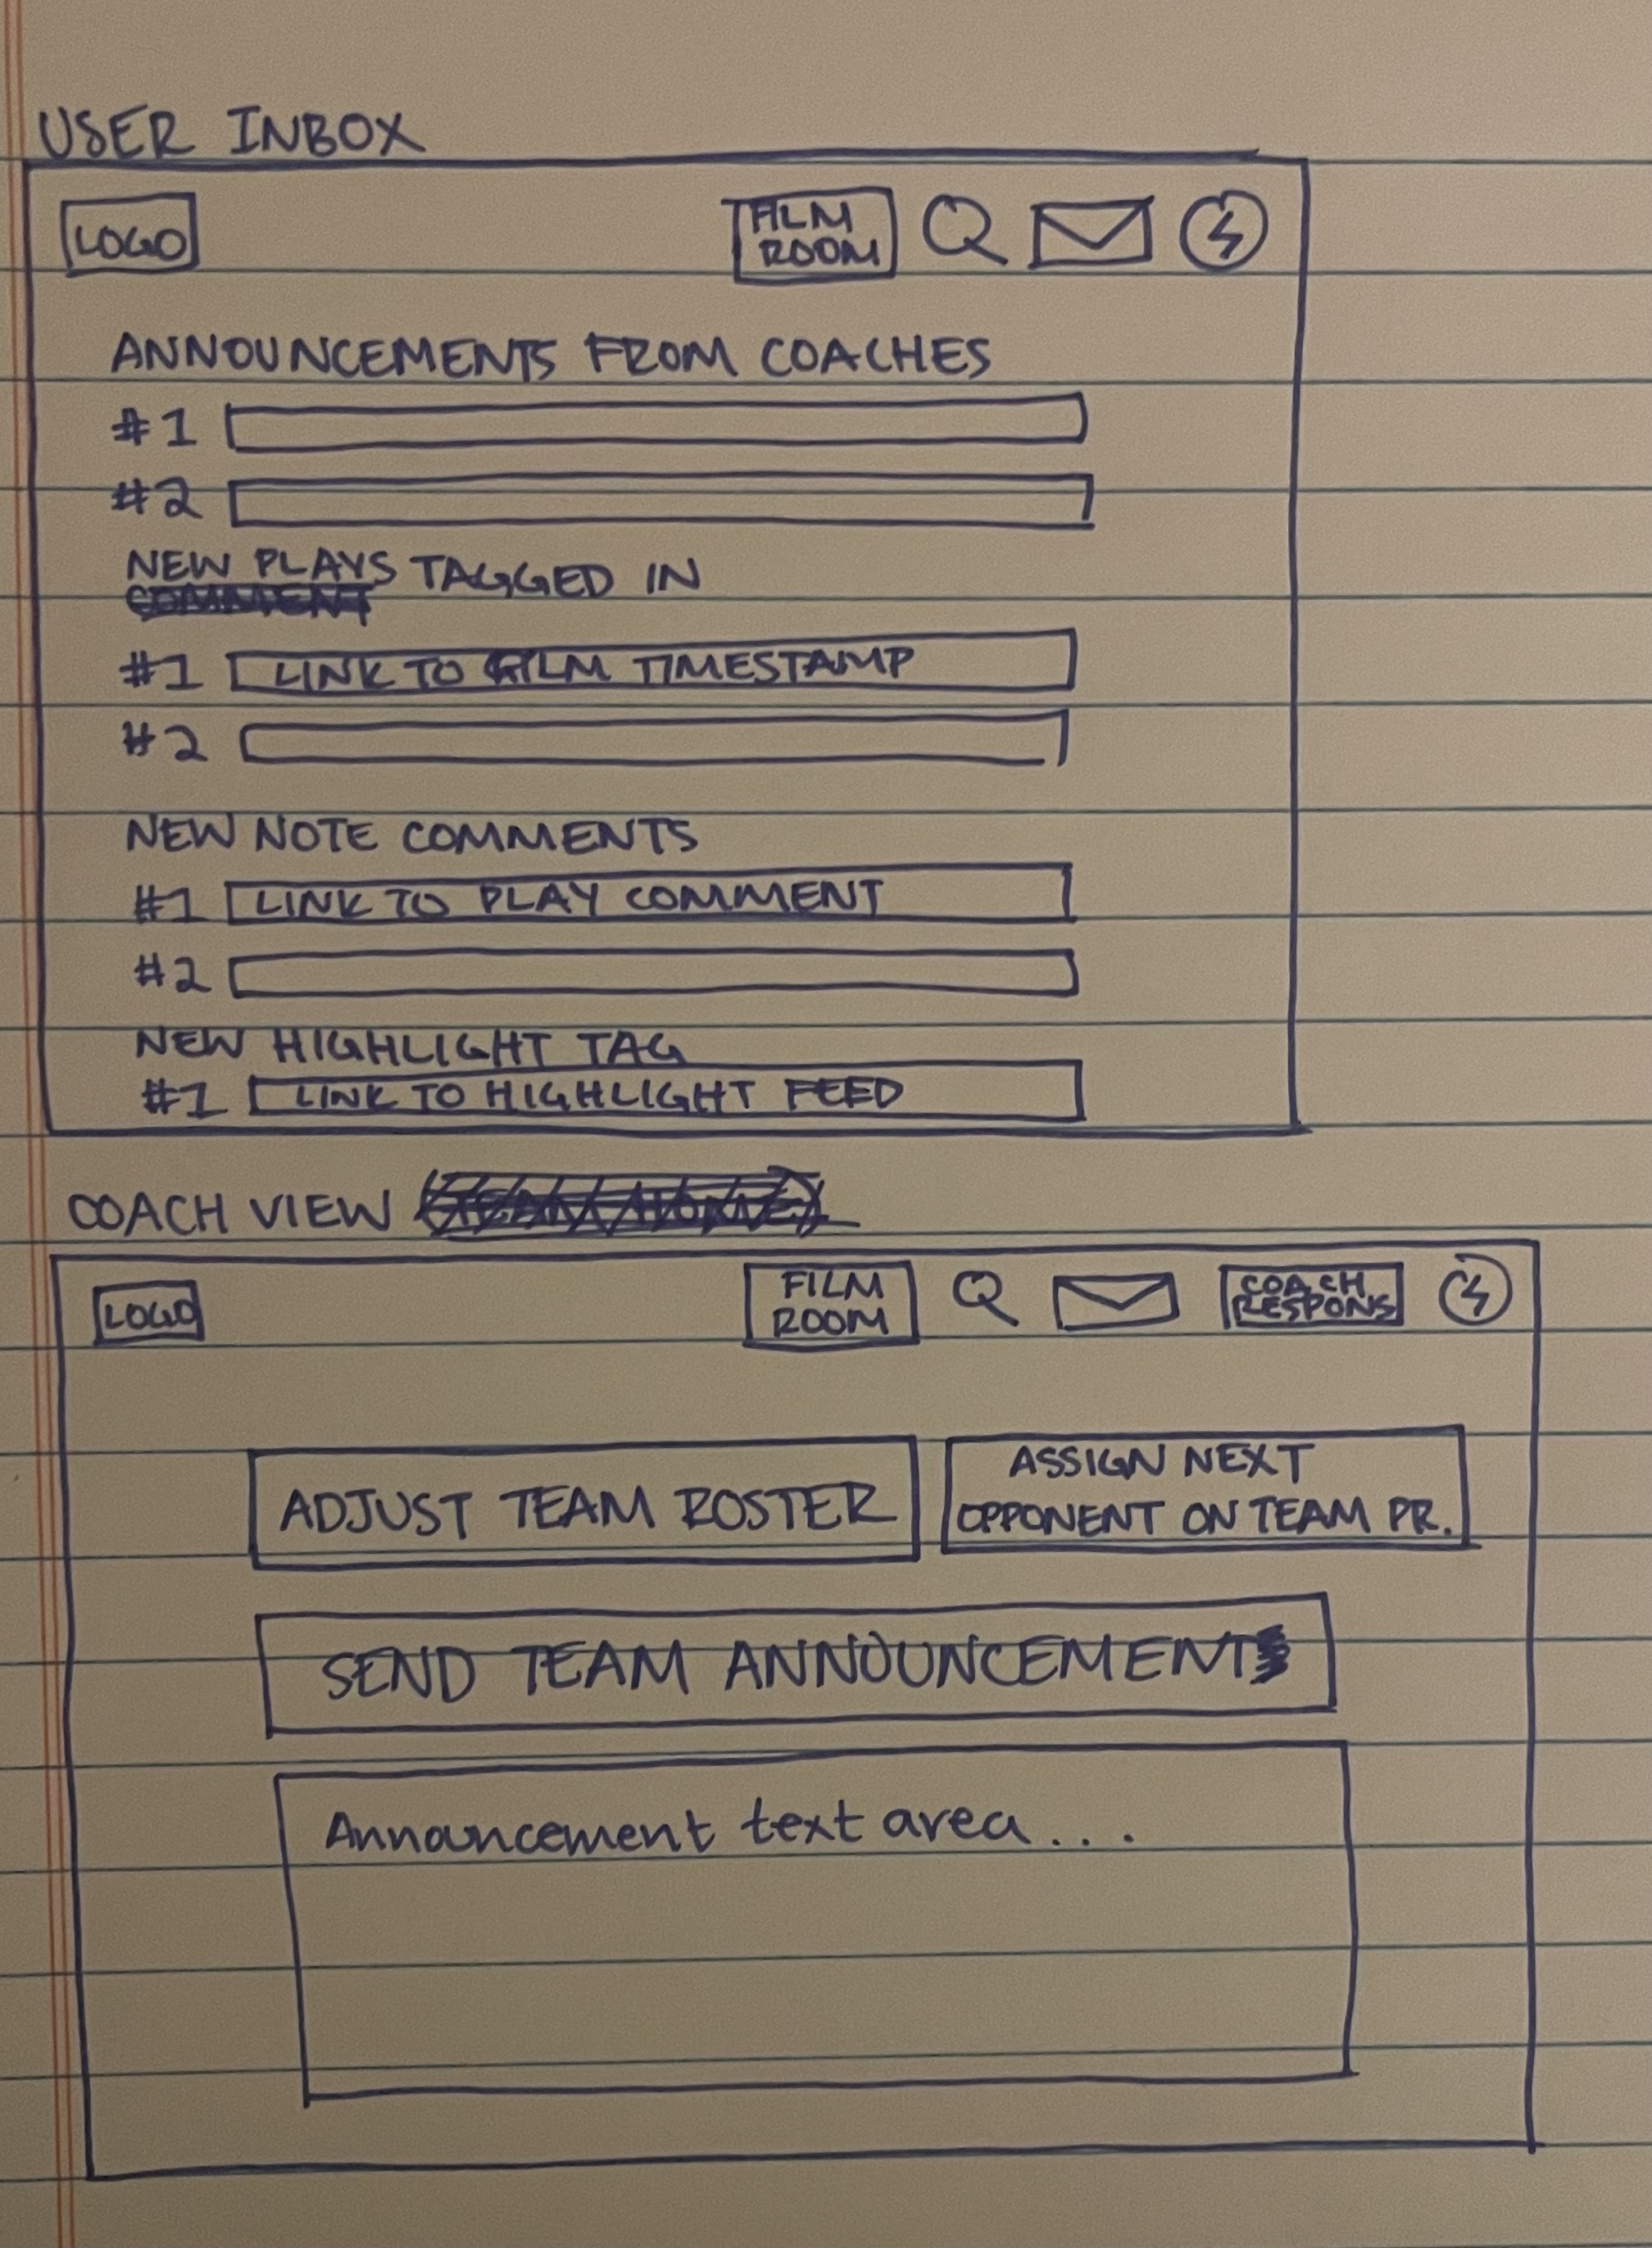 USER INBOX
LOGO
FILM
ROOM
ANNOUNCEMENTS FROM COACHES
#1
#2
NEW PLAYS TAGGED IN
#1 LINK TO FILM TIMESTAMP
#2
NEW NOTE COMMENTS
#1 LINK TO PLAY COMMENT
#2
NEW HIGHLIGHT TAG
#1 LINK TO HIGHLIGHT FEED
COACH VIEW
LOGO
FILM
ROOM
COACH
RESPONS
ADJUST TEAM ROSTER
ASSIGN NEXT
OPPONENT ON TEAM PR.
SEND TEAM ANNOUNCEMENT
Announcement text area...